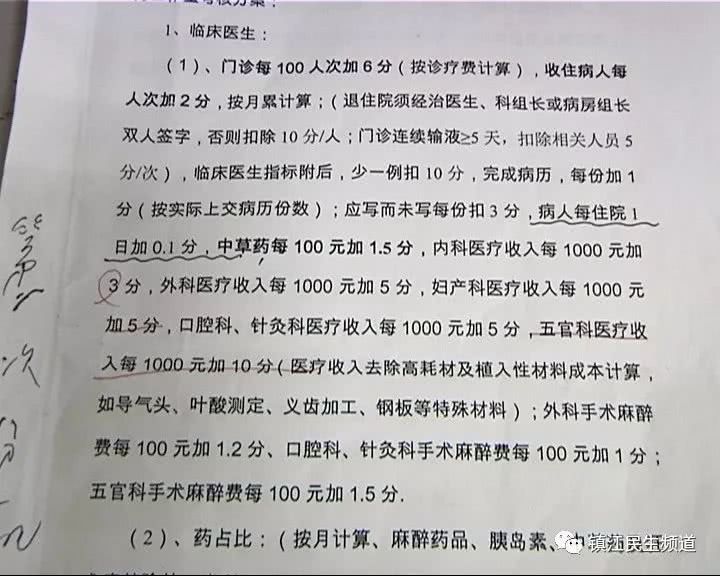 1、临床医生：
（1）、门诊每100人次加6分（按诊疗费计算），收住病人每
人次加2分，按月累计算；（退住院须经治医生、科组长或病房组长
双人签字，否则扣除10分/人；门诊连续输液≥5天，扣除相关人员5
分/次），临床医生指标附后，少一例扣10分，完成病历，每份加1
分（按实际上交病历份数）；应写而未写每份扣3分，病人每住院1
日加0.1分，中草药每100元加1.5分，内科医疗收入每1000元加
3分，外科医疗收入每1000元加5分，妇产科医疗收入每1000元
加5分，口腔科、针灸科医疗收入每1000元加5分，五官科医疗收
入每1000元加10分（医疗收入去除高耗材及植入性材料成本计算，
如导气头、叶酸测定、义齿加工、钢板等特殊材料）；外科手术麻醉
费每100元加1.2分、口腔科、针灸科手术麻醉费每100元加1分；
五官科手术麻醉费每100元加1.5分.
（2）、药占比：（按月计算、麻醉药品、胰岛素、中
镇江民生频道